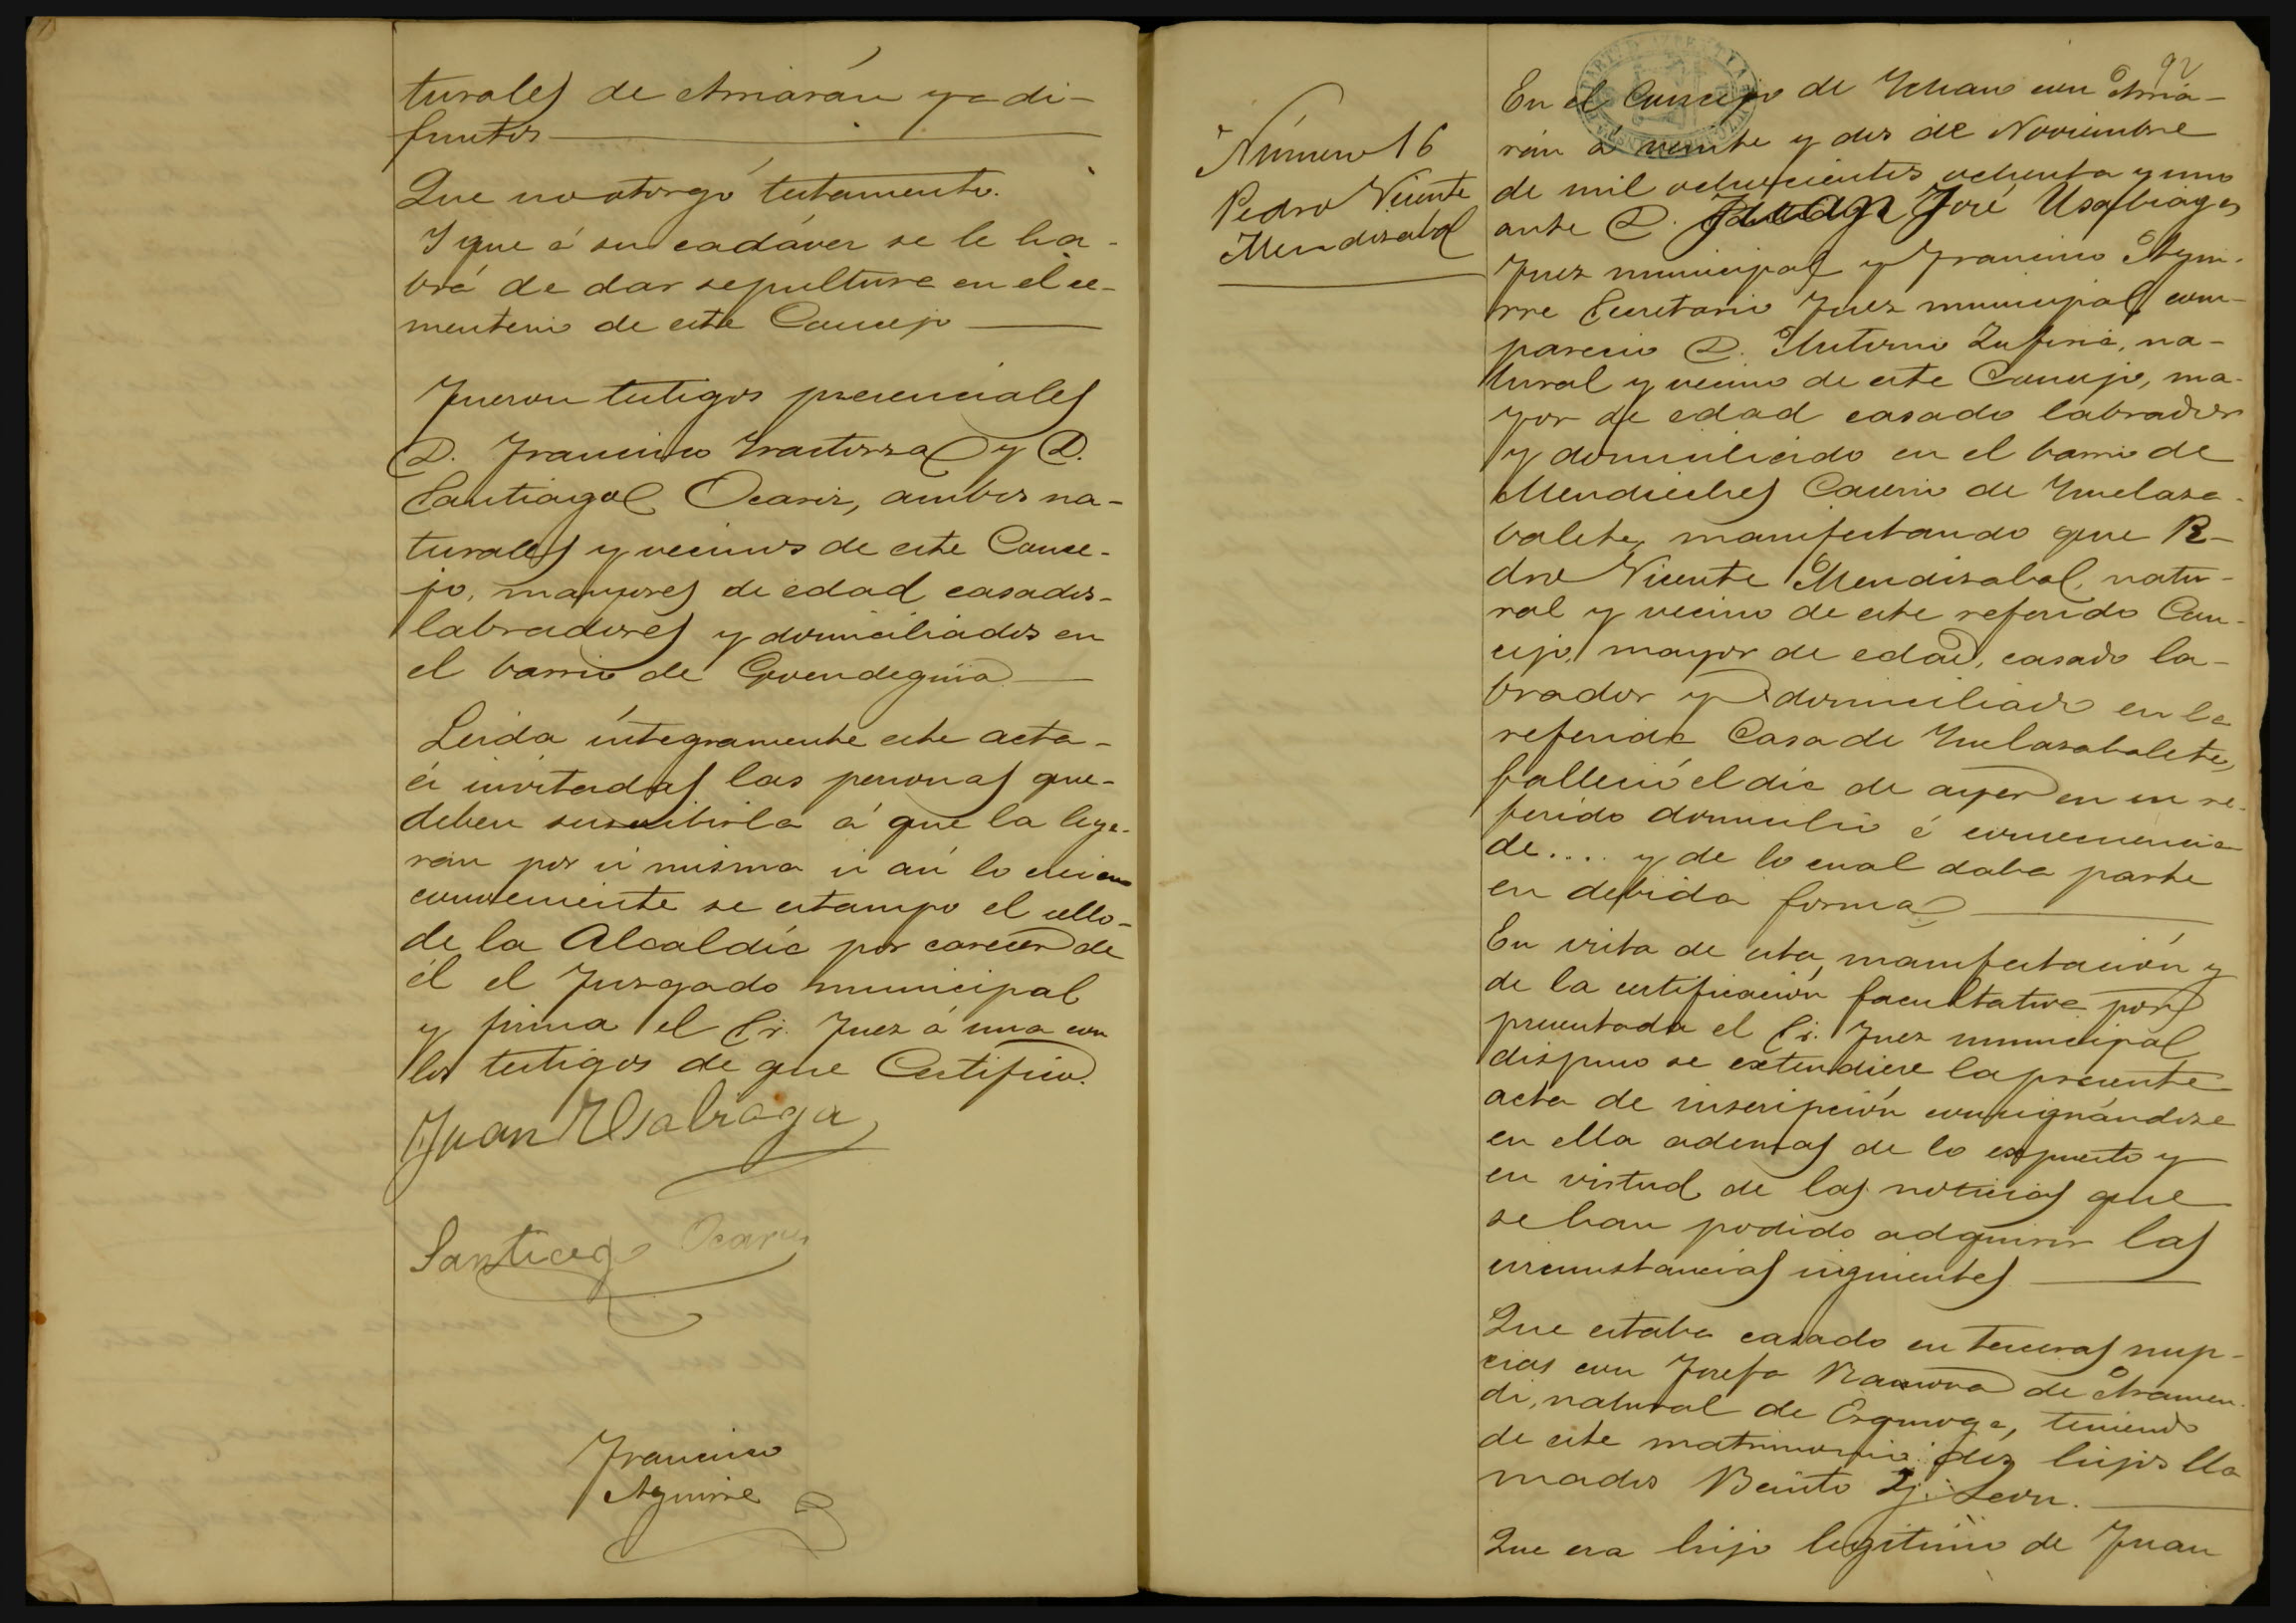 turales de Amarán ya di-
funtos
Que no otorgó testamento.
Y que á su cadáver se le ha-
brá de dar sepultura en el ce-
menterio de este Concejo
Fueron testigos presenciales
D. Francisco Irastorza y D.
Santiago Ocariz, ambos na-
turales y vecinos de este Conce-
jo, mayores de edad casados-
labradores y domiciliados en
el barrio de Goendeguia
Leida íntegramente este acta-
é invitadas las personas que-
deben suscribirla á que la leye-
ran por si misma si asi lo creian
conveniente se estampo el sello-
de la Alcaldía por carecer de
él el Juzgado municipal
y firma el Sr. Juez á una con
los testigos de que Certifico.
Juan Usabiaga
Santiago Ocariz
Francisco
Aguirre
92
Número 16
Pedro Vicente
Mendizabal
En el Concejo de Ichaso con Arria-
rán á veinte y dos de Noviembre
de mil ochocientos ochenta y uno
ante D. Juan José Usabiaga
Juez municipal y Francisco Agui-
rre Secretario Juez municipal com-
pareció D. Antonio Zufiria, na-
tural y vecino de este Concejo, ma-
yor de edad casado labrador
y domiciliado en el barrio de
Caserio de
manifestando que Pe-
dro Vicente Mendizabal, natu-
ral y vecino de este referido Con-
cejo, mayor de edad, casado la-
brador y domiciliado en la
referida Casa de
falleció el dia de ayer en su re-
ferido domicilio á consecuencia
de.... y de lo cual daba parte
en debida forma
En vista de esta manifestación y
de la certificación facultativa por
presentada el Sr. Juez municipal
dispuso se extendiese la presente
acta de inscripción consignándose
en ella ademas de lo expuesto y
en virtud de las noticias que
se han podido adquirir las
circunstancias siguientes
Que estaba casado en terceras nup-
cias con Josefa Ramona de Aramen-
di, natural de Ezquioga, teniendo
de este matrimonio dos hijos lla
mados Benito y Leon.
Que era hijo legitimo de Juan